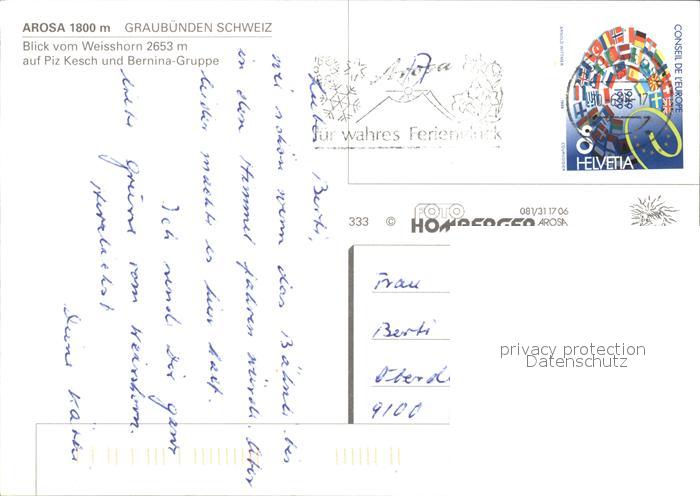 AROSA 1800 m GRAUBÜNDEN SCHWEIZ
Blick vom Weisshorn 2653 m
auf Piz Kesch und Bernina-Gruppe
Arosa
für wahres Ferienglück
CONSEIL DE L'EUROPE
1949
1999
90
HELVETIA
333 © FOTO HOMBERGER 081/31 17 06 AROSA
Liebe Berti,
wie schön wenn das Bähnli bis
in den Himmel fahren würde. Aber
leider macht es hier halt.
Ich send Dir ganz
liebe Grüsse vom Weisshorn.
Herzlichst
Deine Käthi
Frau
Berti
Oberd
9100
privacy protection
Datenschutz